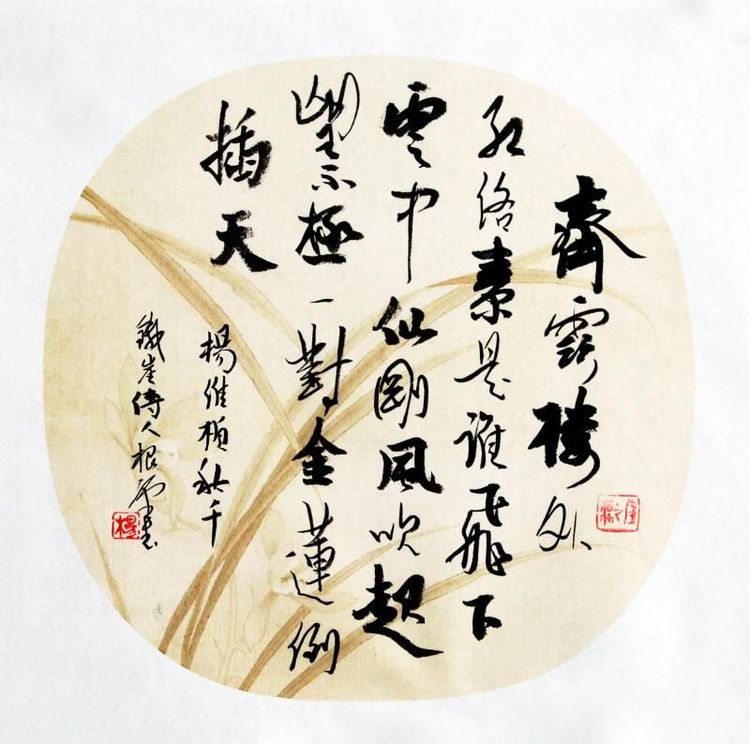 齊雲楼外
紅絡索是誰飛下
雲中仙剛風吹起
望不極一對金蓮倒
插天
楊維楨秋千
鐵崖傳人根書
楊